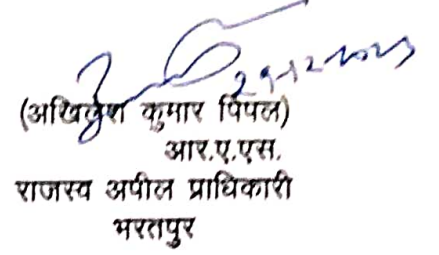 29-12-2023
(अखिलेश कुमार पिंपल)
आर.ए.एस.
राजस्व अपील प्राधिकारी
भरतपुर